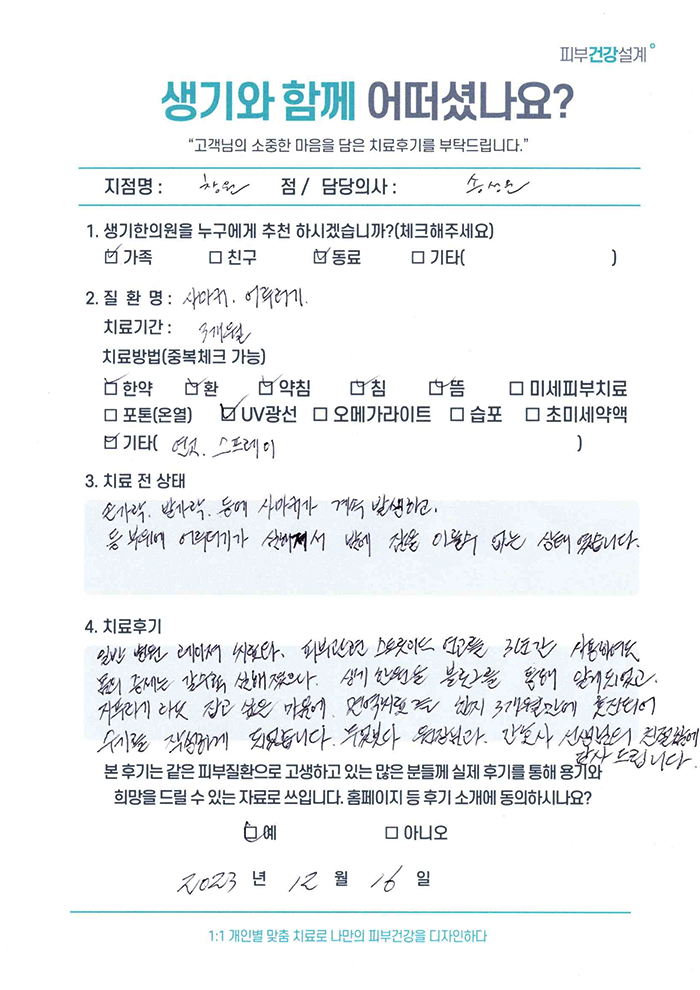 피부건강설계°
생기와 함께 어떠셨나요?
“고객님의 소중한 마음을 담은 치료후기를 부탁드립니다.”
지점명 : 창원 점 / 담당의사 :
1. 생기한의원을 누구에게 추천 하시겠습니까?(체크해주세요)
☑ 가족 □ 친구 ☑ 동료 □ 기타( )
2. 질 환 명 : 사마귀. 어루러기.
치료기간 : 3개월
치료방법(중복체크 가능)
☑ 한약 ☑ 환 ☑ 약침 ☑ 침 ☑ 뜸 □ 미세피부치료
□ 포톤(온열) ☑ UV광선 □ 오메가라이트 □ 습포 □ 초미세약액
☑ 기타( 연고. 스프레이 )
3. 치료 전 상태
손가락. 발가락. 등에 사마귀가 계속 발생하고.
등 부위에 어루러기가 심해져서 밤에 잠을 이룰수 없는 상태였습니다.
4. 치료후기
일반 병원 레이저 치료와. 피부관련 스테로이드 연고를 3년간 사용하여도
몸의 증세는 갈수록 심해졌으나. 생기한의원을 블로그를 통해 알게되었고.
지푸라기라도 잡고 싶은 마음에. 면역치료 한지 3개월만에 호전되어
후기를 작성하게 되었습니다. 무엇보다 원장님과. 간호사 선생님들의 친절함에
감사 드립니다.
본 후기는 같은 피부질환으로 고생하고 있는 많은 분들께 실제 후기를 통해 용기와
희망을 드릴 수 있는 자료로 쓰입니다. 홈페이지 등 후기 소개에 동의하시나요?
☑ 예 □ 아니오
2023 년 12 월 16 일
1:1 개인별 맞춤 치료로 나만의 피부건강을 디자인하다